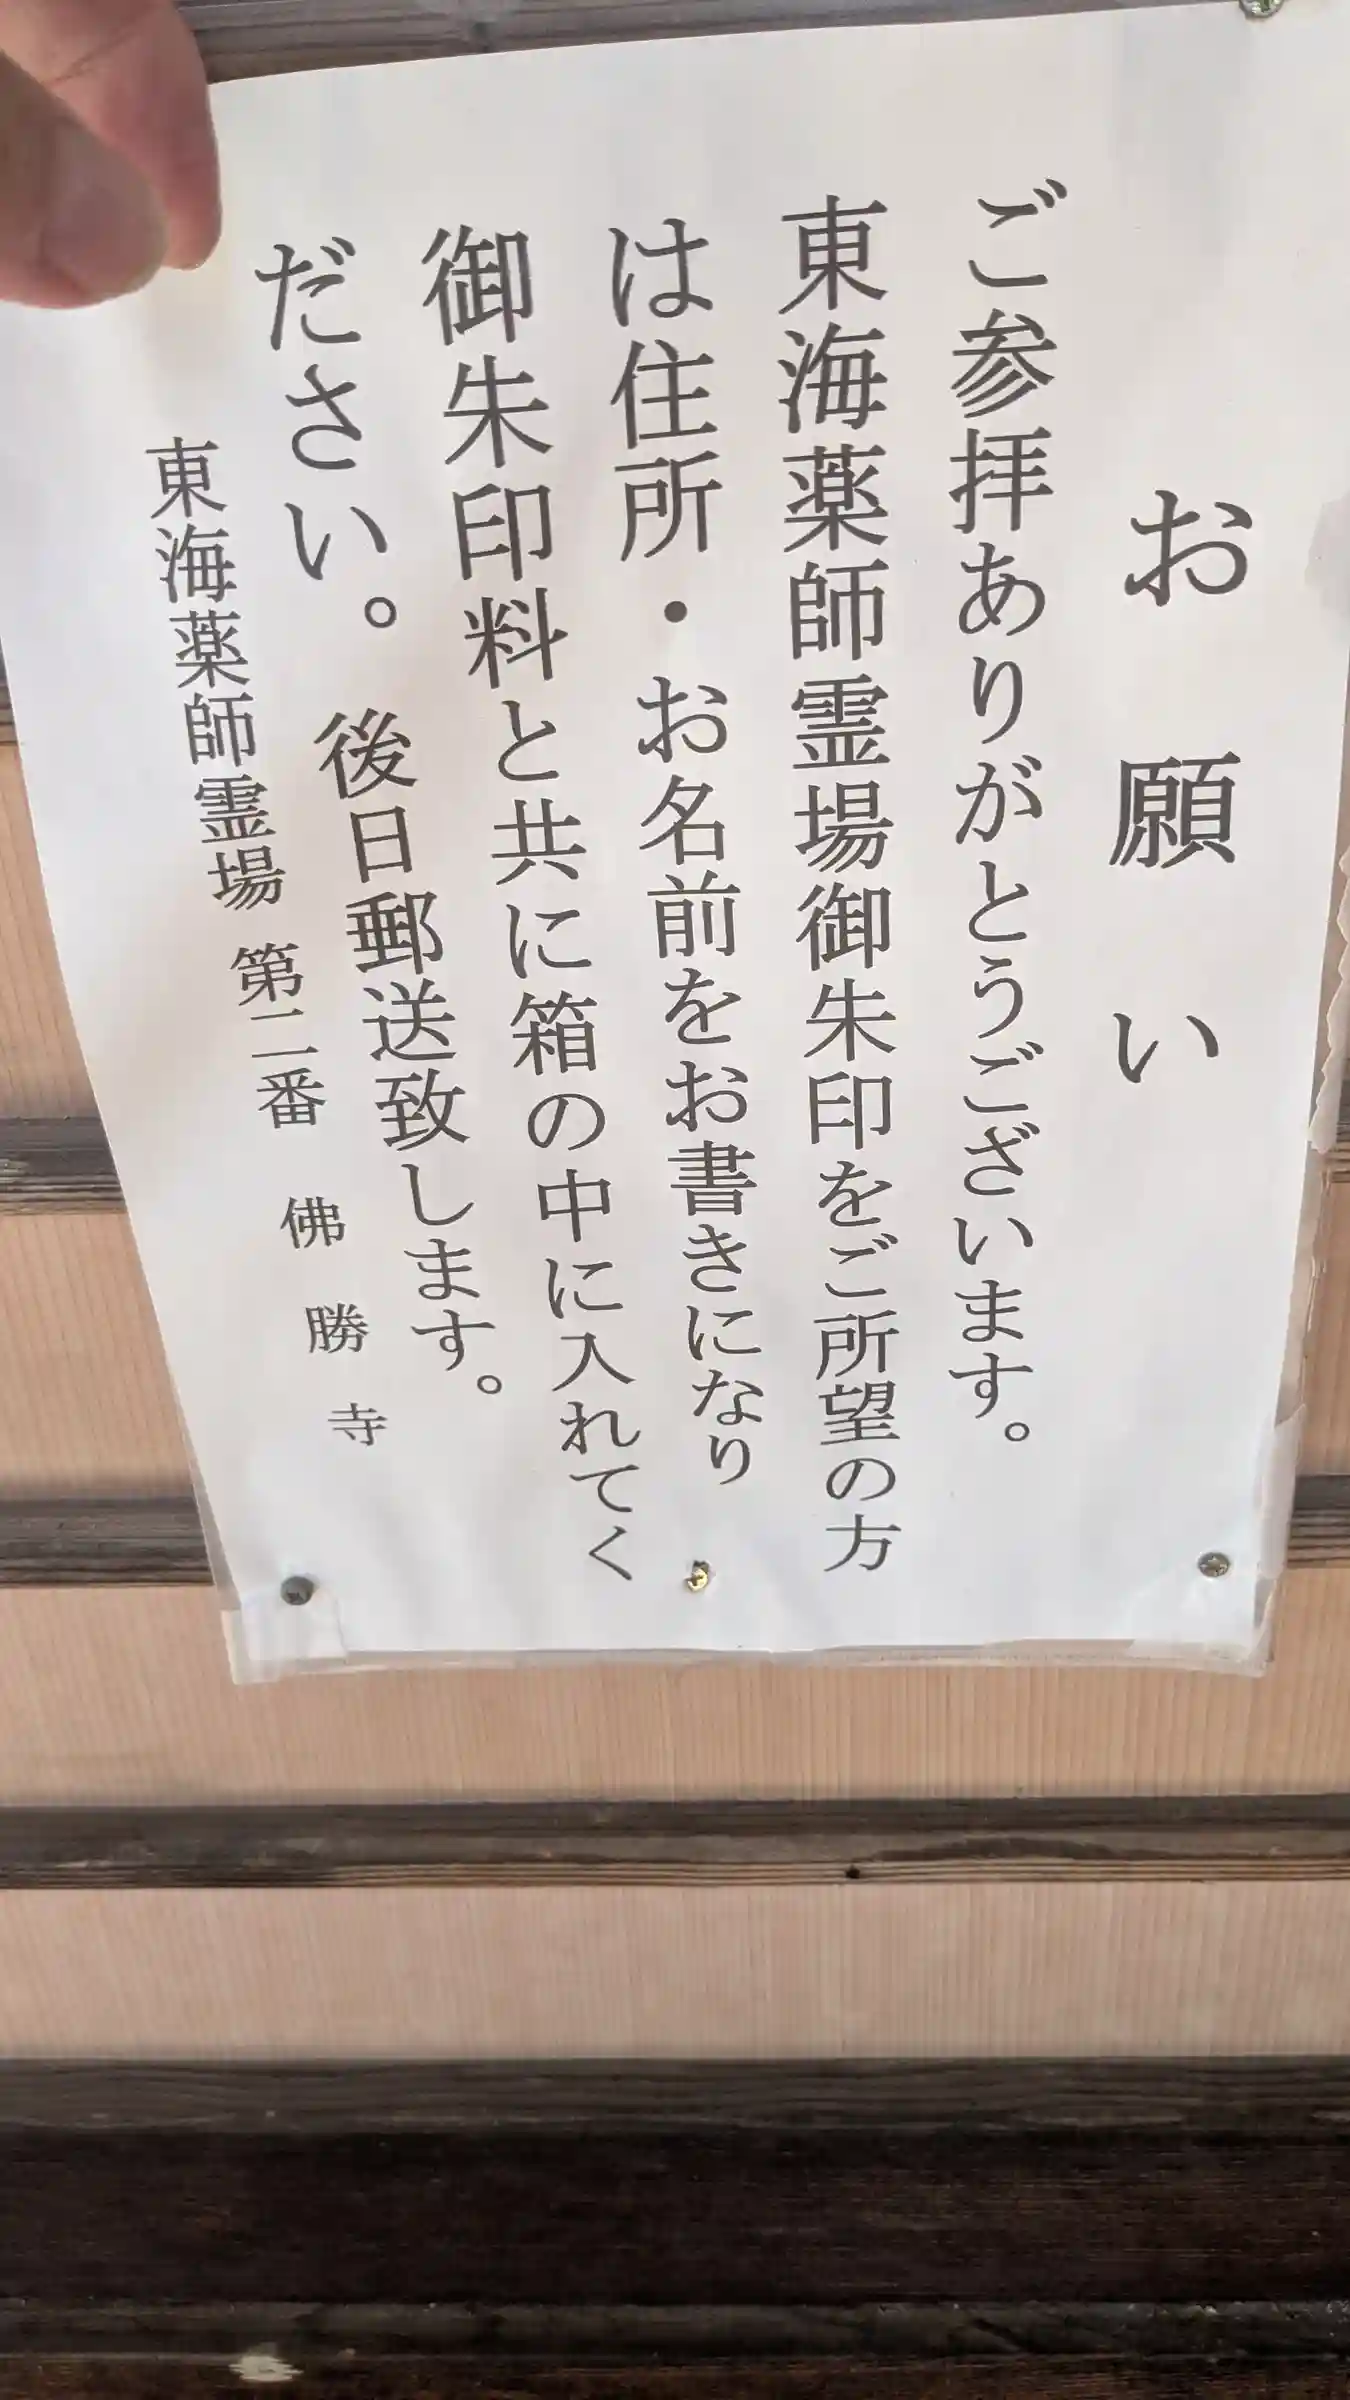 お願い
ご参拝ありがとうございます。
東海薬師霊場御朱印をご所望の方
は住所・お名前をお書きになり
御朱印料と共に箱の中に入れてく
ださい。後日郵送致します。
東海薬師霊場 第二番 佛勝寺